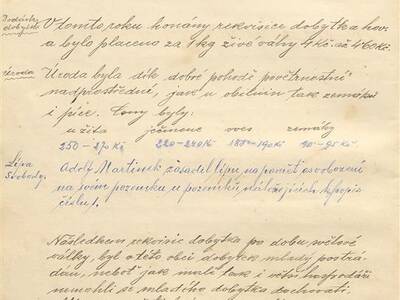 Dodávky dobytka
V tomto roku konány rekvisice dobytka hov.
a bylo placeno za 1 kg živé váhy 4 Kč. až 4·60 Kč.
Úroda
Úroda byla dík dobré pohodě povětrnostní
nadprostřední, jak u obilnin tak zemáků
i píce. Ceny byly:
u žita ječmene oves zemáky
250–270 Kč 220–240 Kč 180–190 Kč 90–95 Kč
Lípa Svobody.
Adolf Martinek zasadil lípu na paměť osvobození
na svém pozemku u pozemků náležejících k popis
číslu 1.
Následkem rekvisic dobytka po dobu světové
války, byl o této obci dobytek mladý postrá-
dán, neboť jak malí tak i větší hospodáři
nemohli si mladého dobytka dochovati.